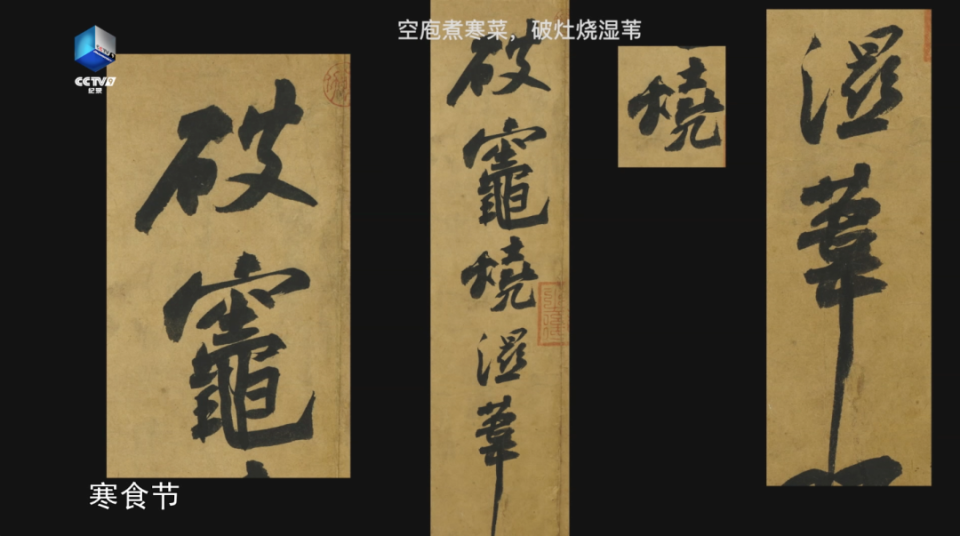 空庖煮寒菜，破灶烧湿苇
CCTV9
纪录
破竈
破竈燒濕葦
燒
濕葦
寒食节